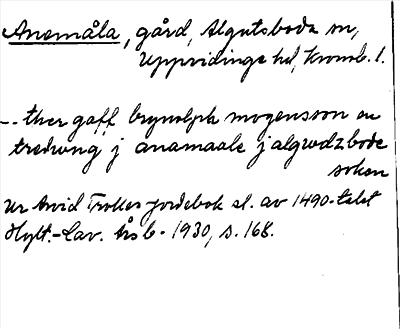 Anamåla, gård, Algutsboda sn,
Uppvidinge hd, Kronob. l.
-- ther gaff brynolph mogensson en
tredwng j anamaale j algwdzbode
soken
Ur Arvid Trolles jordebok sl. av 1490-talet
Hylt.-Cav. årsb. 1930, s. 168.